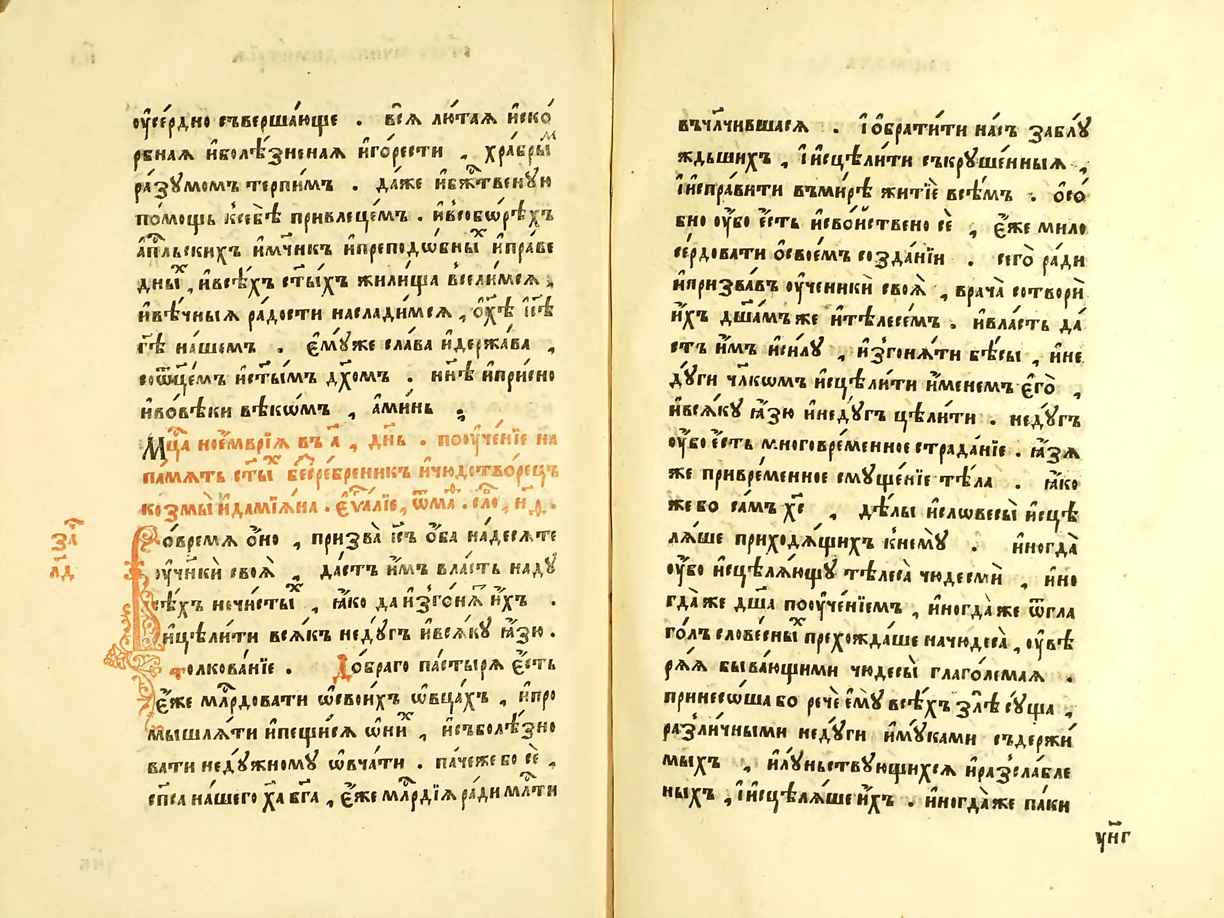 оу҆се́рдно съверша́юще . всѧ̀ лю́таѧ и҆ско́
рбнаѧ и҆болѣ́зненаѧ и҆го́рести , хра́брыⷨ
ра́зумомъ терпи́мъ . да́же и҆бжⷭ҇твеную
по́мощь ксебѣ̀ привлеце́мъ . и҆всобѡ́рѣхъ
а҆пⷭ҇льскихъ и҆мч҃никъ и҆преподѡ́бныⷯ и҆пра́ве
дныⷯ , и҆всѣ́хъ ст҃ы́хъ жили́ща всели́мсѧ ,
и҆вѣ́чныѧ ра́дости наслади́мсѧ , ѡ҆хⷭ҇ѣ̀ і҆сⷭ҇ѣ̀
гⷭ҇ѣ̀ на́шемъ . є҆му́же сла́ва и҆держа́ва ,
соѿц҃е́мъ и҆ст҃ы́мъ дх҃омъ . нн҃ѣ и҆при́сно
и҆во́вѣки вѣкѡ́мъ , а҆ми́нь .
Мцⷭ҇а ное́мврїѧ въ а҃ , дн҃ь . пооуче́нїе на
па́мѧть ст҃ыⷯ бесре́бреникъ и҆чюдотво́рецъ
козмы̀ и҆дамїѧ́на . є҆ѵⷢ҇а́лїе , ѿмаⷴ҇ . сло́во , н҃д .
за҃ч
л҃д
Вовремѧ ѻ҆́но , призва̀ і҆с҃ъ ѻ҆ба на́десѧте
оу҆чн҃кѝ своѧ̀ , да́стъ и҆́мъ вла́сть наду́
сѣ́хъ нечи́стыⷯ , ꙗ҆́ко да и҆зго́нѧⷮ и҆́хъ .
и҆цѣли́ти всѧ́къ неду́гъ и҆всѧ́ку ꙗ҆́зю .
толкова́нїе . До́браго па́стырѧ є҆́сть
є҆́же млⷭ҇рдовати ѡ҆свои́хъ ѡ҆вца́хъ , и҆про
мышлѧ́ти и҆пещи́сѧ ѡ҆ни́ⷯ , и҆съболѣ́зно
вати неду́жному ѡ҆вча́ти . па́чеже бо сѐ ,
сп҃са на́шего хⷭ҇а̀ бг҃а , є҆́же млⷭ҇рдїѧ ра́ди млⷭ҇ти
въчл҃чившагѧ . і҆ ѻ҆брати́ти на́съ заблу
ждьшихъ , і҆ и҆сцѣли́ти съкруше́нныѧ ,
і҆ и҆спра́вити въми́рѣ житїѐ всѣ́мъ . ѻ҆со́
бно оу҆́бо є҆́сть и҆сво́йствено сѐ , є҆́же мило
се́рдовати ѻ҆свое́мъ созда́нїи . сего̀ ра́ди
и҆призва́въ оу҆ченикѝ своѧ̀ , врача̀ сотворѝ
и҆́хъ дш҃а́мъ же и҆тѣлесе́мъ . и҆вла́сть да́
стъ и҆́мъ и҆си́лу , и҆згонѧ́ти бѣ́сы , и҆не
ду́ги чл҃кѡмъ и҆сцѣли́ти и҆́менемъ є҆го̀ ,
и҆всѧ́ку ꙗ҆́зю и҆неду́гъ цѣли́ти . неду́гъ
оу҆́бо є҆́сть многовре́менное страда́нїе . ꙗ҆́зѧ
же привре́менное смуще́нїе тѣ́ла . ꙗ҆́ко
же бо са́мъ хⷭ҇ѐ , дѣ́лы и҆словесы̀ и҆сцѣ
лѧ́ше приходѧ́щихъ кнемꙋ̀ . и҆ногда̀
оу҆́бо и҆сцѣлѧ́ющу тѣлеса̀ чюдесмѝ , и҆но
гда̀ же дш҃а̀ поꙋче́нїемъ , и҆ногда̀же ѿгла
го́лъ слове́сныⷯ прехожда́ше начюдеса̀ , оу҆вѣ
рѧ́ѧ быва́ющими чюдесы̀ глаго́лемаѧ .
принесѡ́ша бо речѐ є҆мꙋ̀ всѣ́хъ злѣ̀ су́ща ,
разли́чными неду́ги и҆му́ками съдержи́
мыхъ , и҆лу́ньствующихсѧ и҆разсла́бле
ныхъ , і҆ и҆сцѣлѧ́ше и҆́хъ . и҆ногда̀же па́ки
унг҃